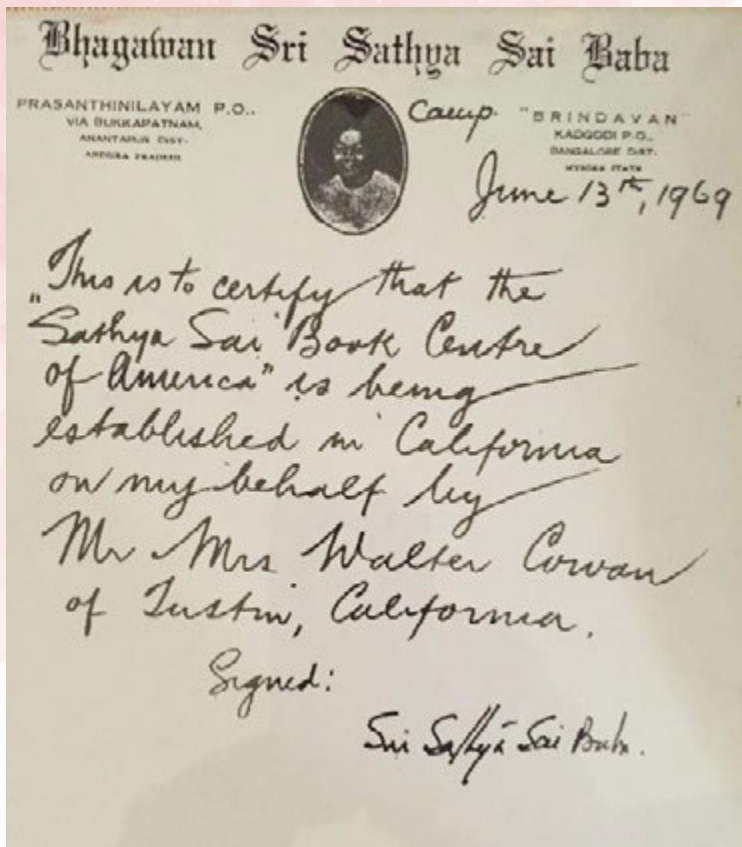 Bhagawan Sri Sathya Sai Baba
PRASANTHINILAYAM P.O..
VIA BUKKAPATNAM,
ANANTAPUR DIST.
ANDHRA PRADESH
Camp. "BRINDAVAN"
KADGODI P.O..
BANGALORE DIST.
MYSORE STATE
June 13th, 1969
This is to certify that the
"Sathya Sai Book Centre
of America" is being
established in California
on my behalf by
Mr Mrs Walter Cowan
of Tustin, California.
Signed:
Sri Sathya Sai Baba.